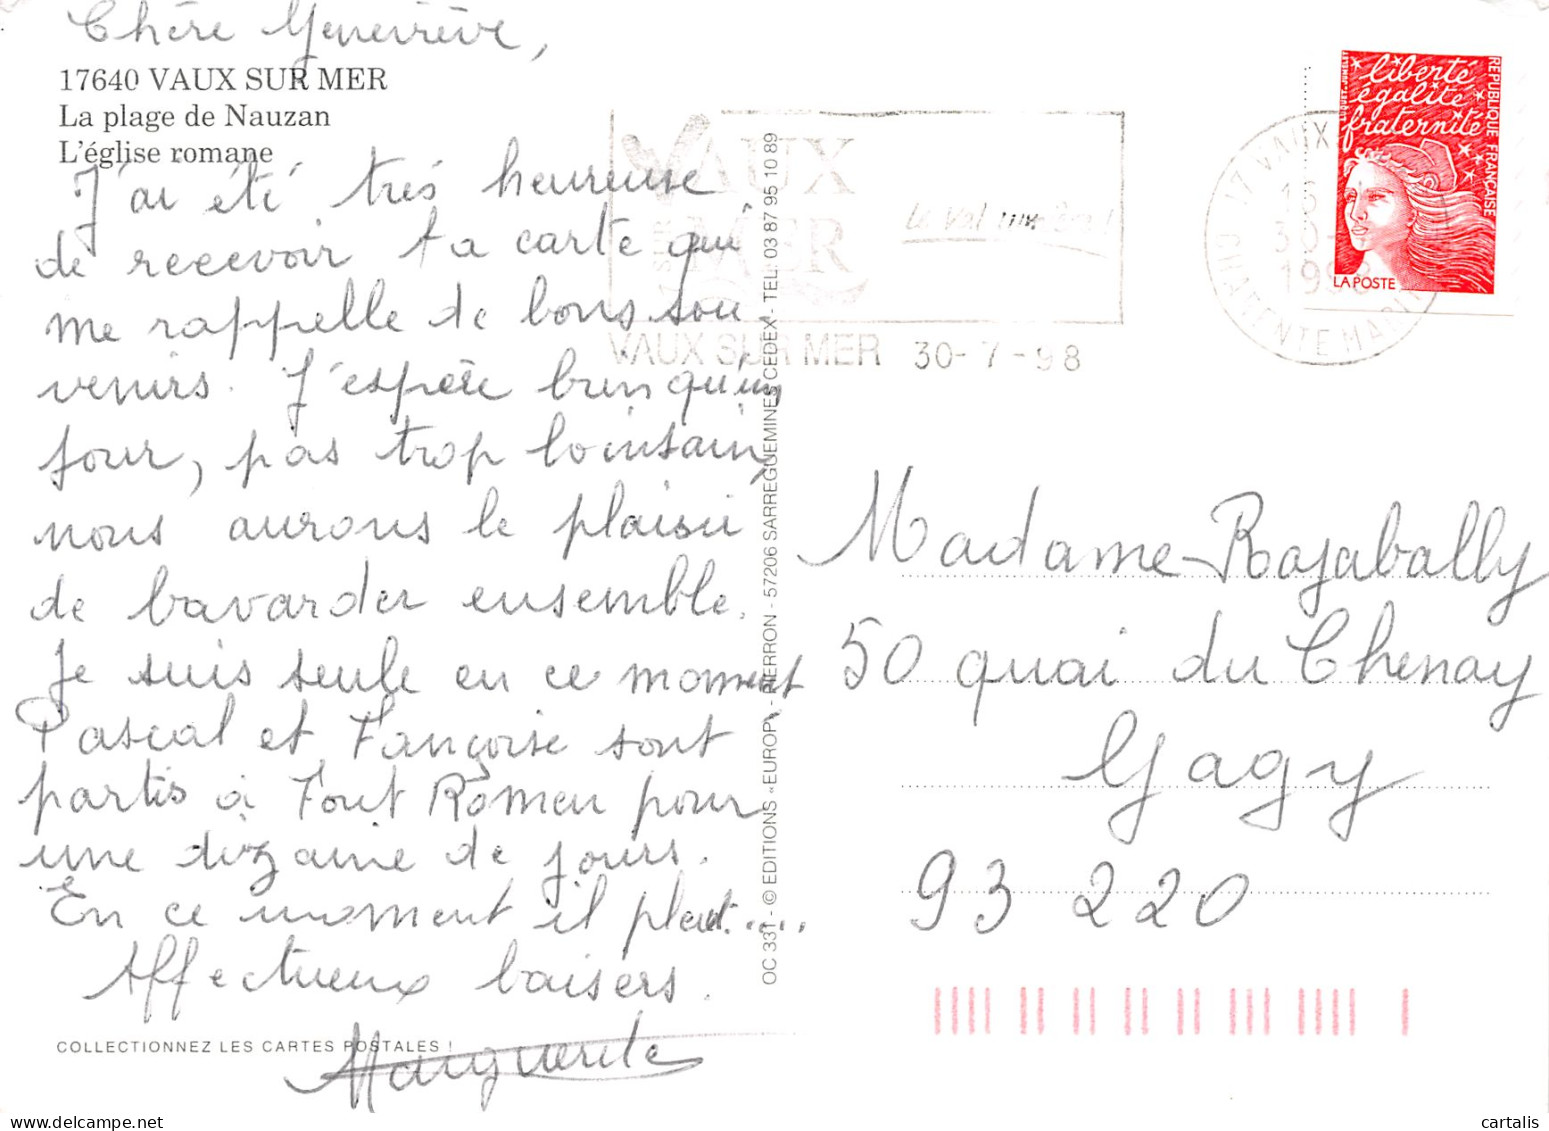 Chère Geneviève,
17640 VAUX SUR MER
La plage de Nauzan
L'église romane
J'ai été très heureuse
de recevoir ta carte qui
me rappelle de bons sou-
venirs. J'espère bien qu'un
jour, pas trop lointain,
nous aurons le plaisir
de bavarder ensemble.
Je suis seule en ce moment
Pascal et Françoise sont
partis à Font Romeu pour
une dizaine de jours.
En ce moment il pleut....
Affectueux baisers.
Marguerite
COLLECTIONNEZ LES CARTES POSTALES !
OC 331 - © EDITIONS «EUROP» - PIERRON - 57206 SARREGUEMINES CEDEX - TEL: 03 87 95 10 89
VAUX
SUR
MER
VAUX SUR MER 30-7-98
17 VAUX
CHARENTE MARI
30-
1998
liberté
égalité
fraternité
REPUBLIQUE FRANÇAISE
LA POSTE
Madame Rajabally
50 quai du Chenay
Gagy
93 220
cartalis